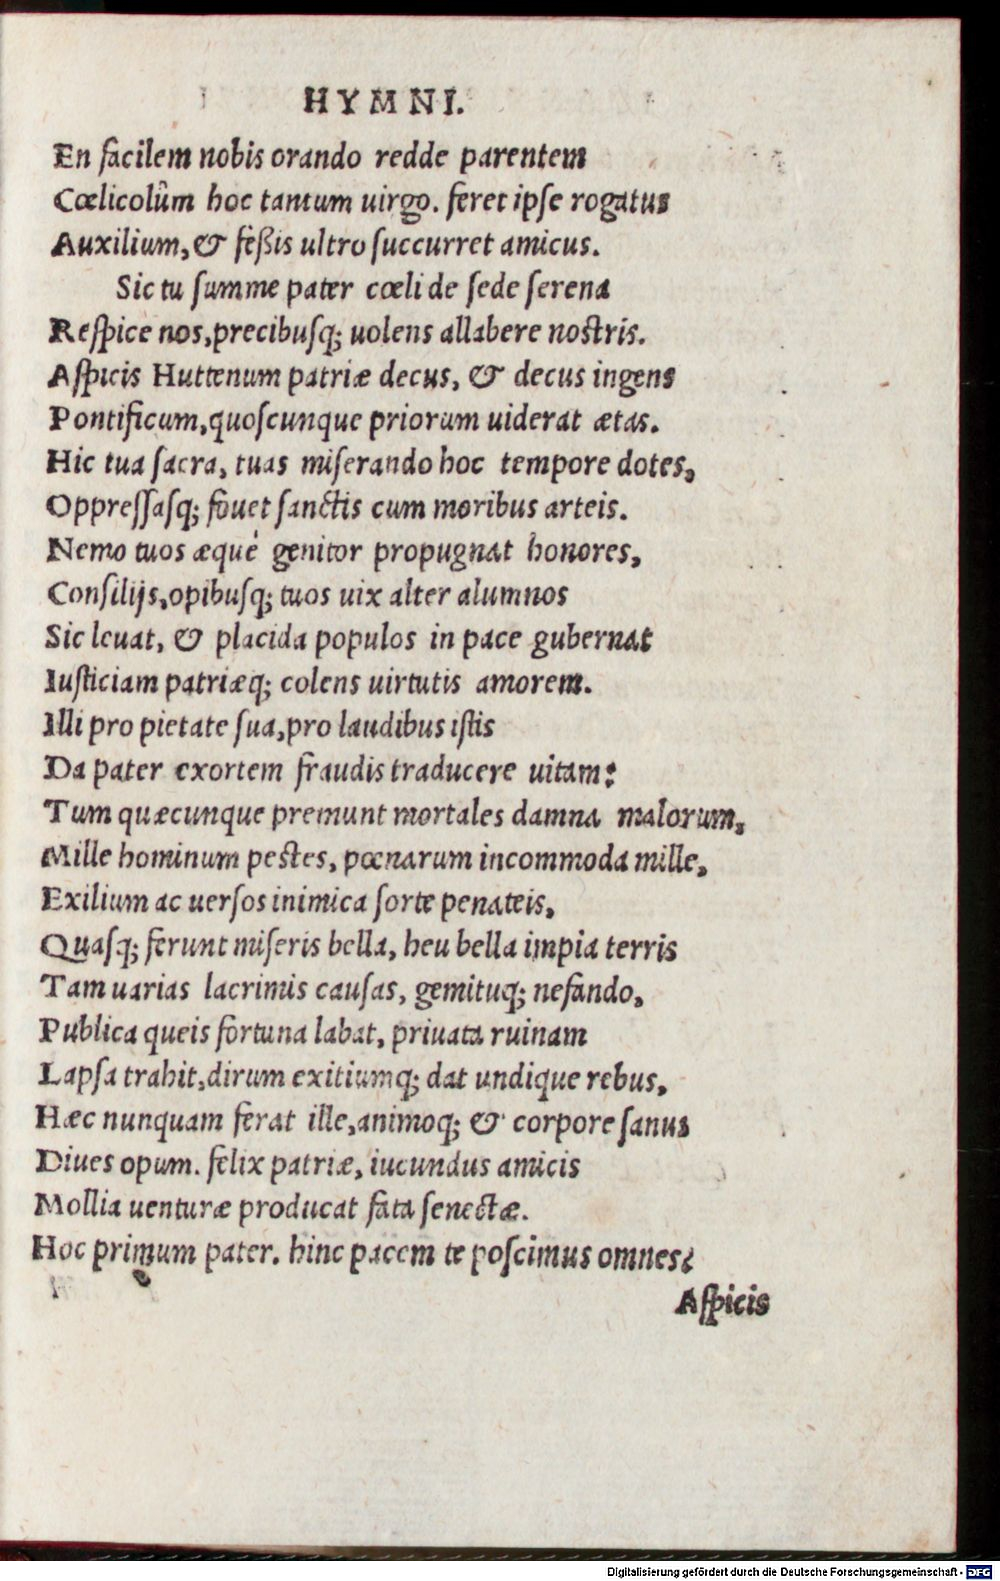 HYMNI.
En facilem nobis orando redde parentem
Cœlicolûm hoc tantum uirgo. feret ipſe rogatus
Auxilium, & feßis ultro ſuccurret amicus.
Sic tu ſumme pater cœli de ſede ſerena
Reſpice nos, precibuſq; uolens allabere noſtris.
Aſpicis Huttenum patriæ decus, & decus ingens
Pontificum, quoſcunque priorum uiderat ætas.
Hic tua ſacra, tuas miſerando hoc tempore dotes,
Oppreſſaſq; fouet ſanctis cum moribus arteis.
Nemo tuos æquè genitor propugnat honores,
Conſilijs, opibuſq; tuos uix alter alumnos
Sic leuat, & placida populos in pace gubernat
Iuſticiam patriæq; colens uirtutis amorem.
Illi pro pietate ſua, pro laudibus iſtis
Da pater exortem fraudis traducere uitam:
Tum quæcunque premunt mortales damna malorum,
Mille hominum peſtes, pœnarum incommoda mille,
Exilium ac uerſos inimica ſorte penateis,
Quaſq; ferunt miſeris bella, heu bella impia terris
Tam uarias lacrimis cauſas, gemituq; nefando,
Publica queis fortuna labat, priuata ruinam
Lapſa trahit, dirum exitiumq; dat undique rebus,
Hæc nunquam ferat ille, animoq; & corpore ſanus
Diues opum. felix patriæ, iucundus amicis
Mollia uenturæ producat fata ſenectæ.
Hoc primum pater. hinc pacem te poſcimus omnes:
Aſpicis
Digitalisierung gefördert durch die Deutsche Forschungsgemeinschaft - DFG